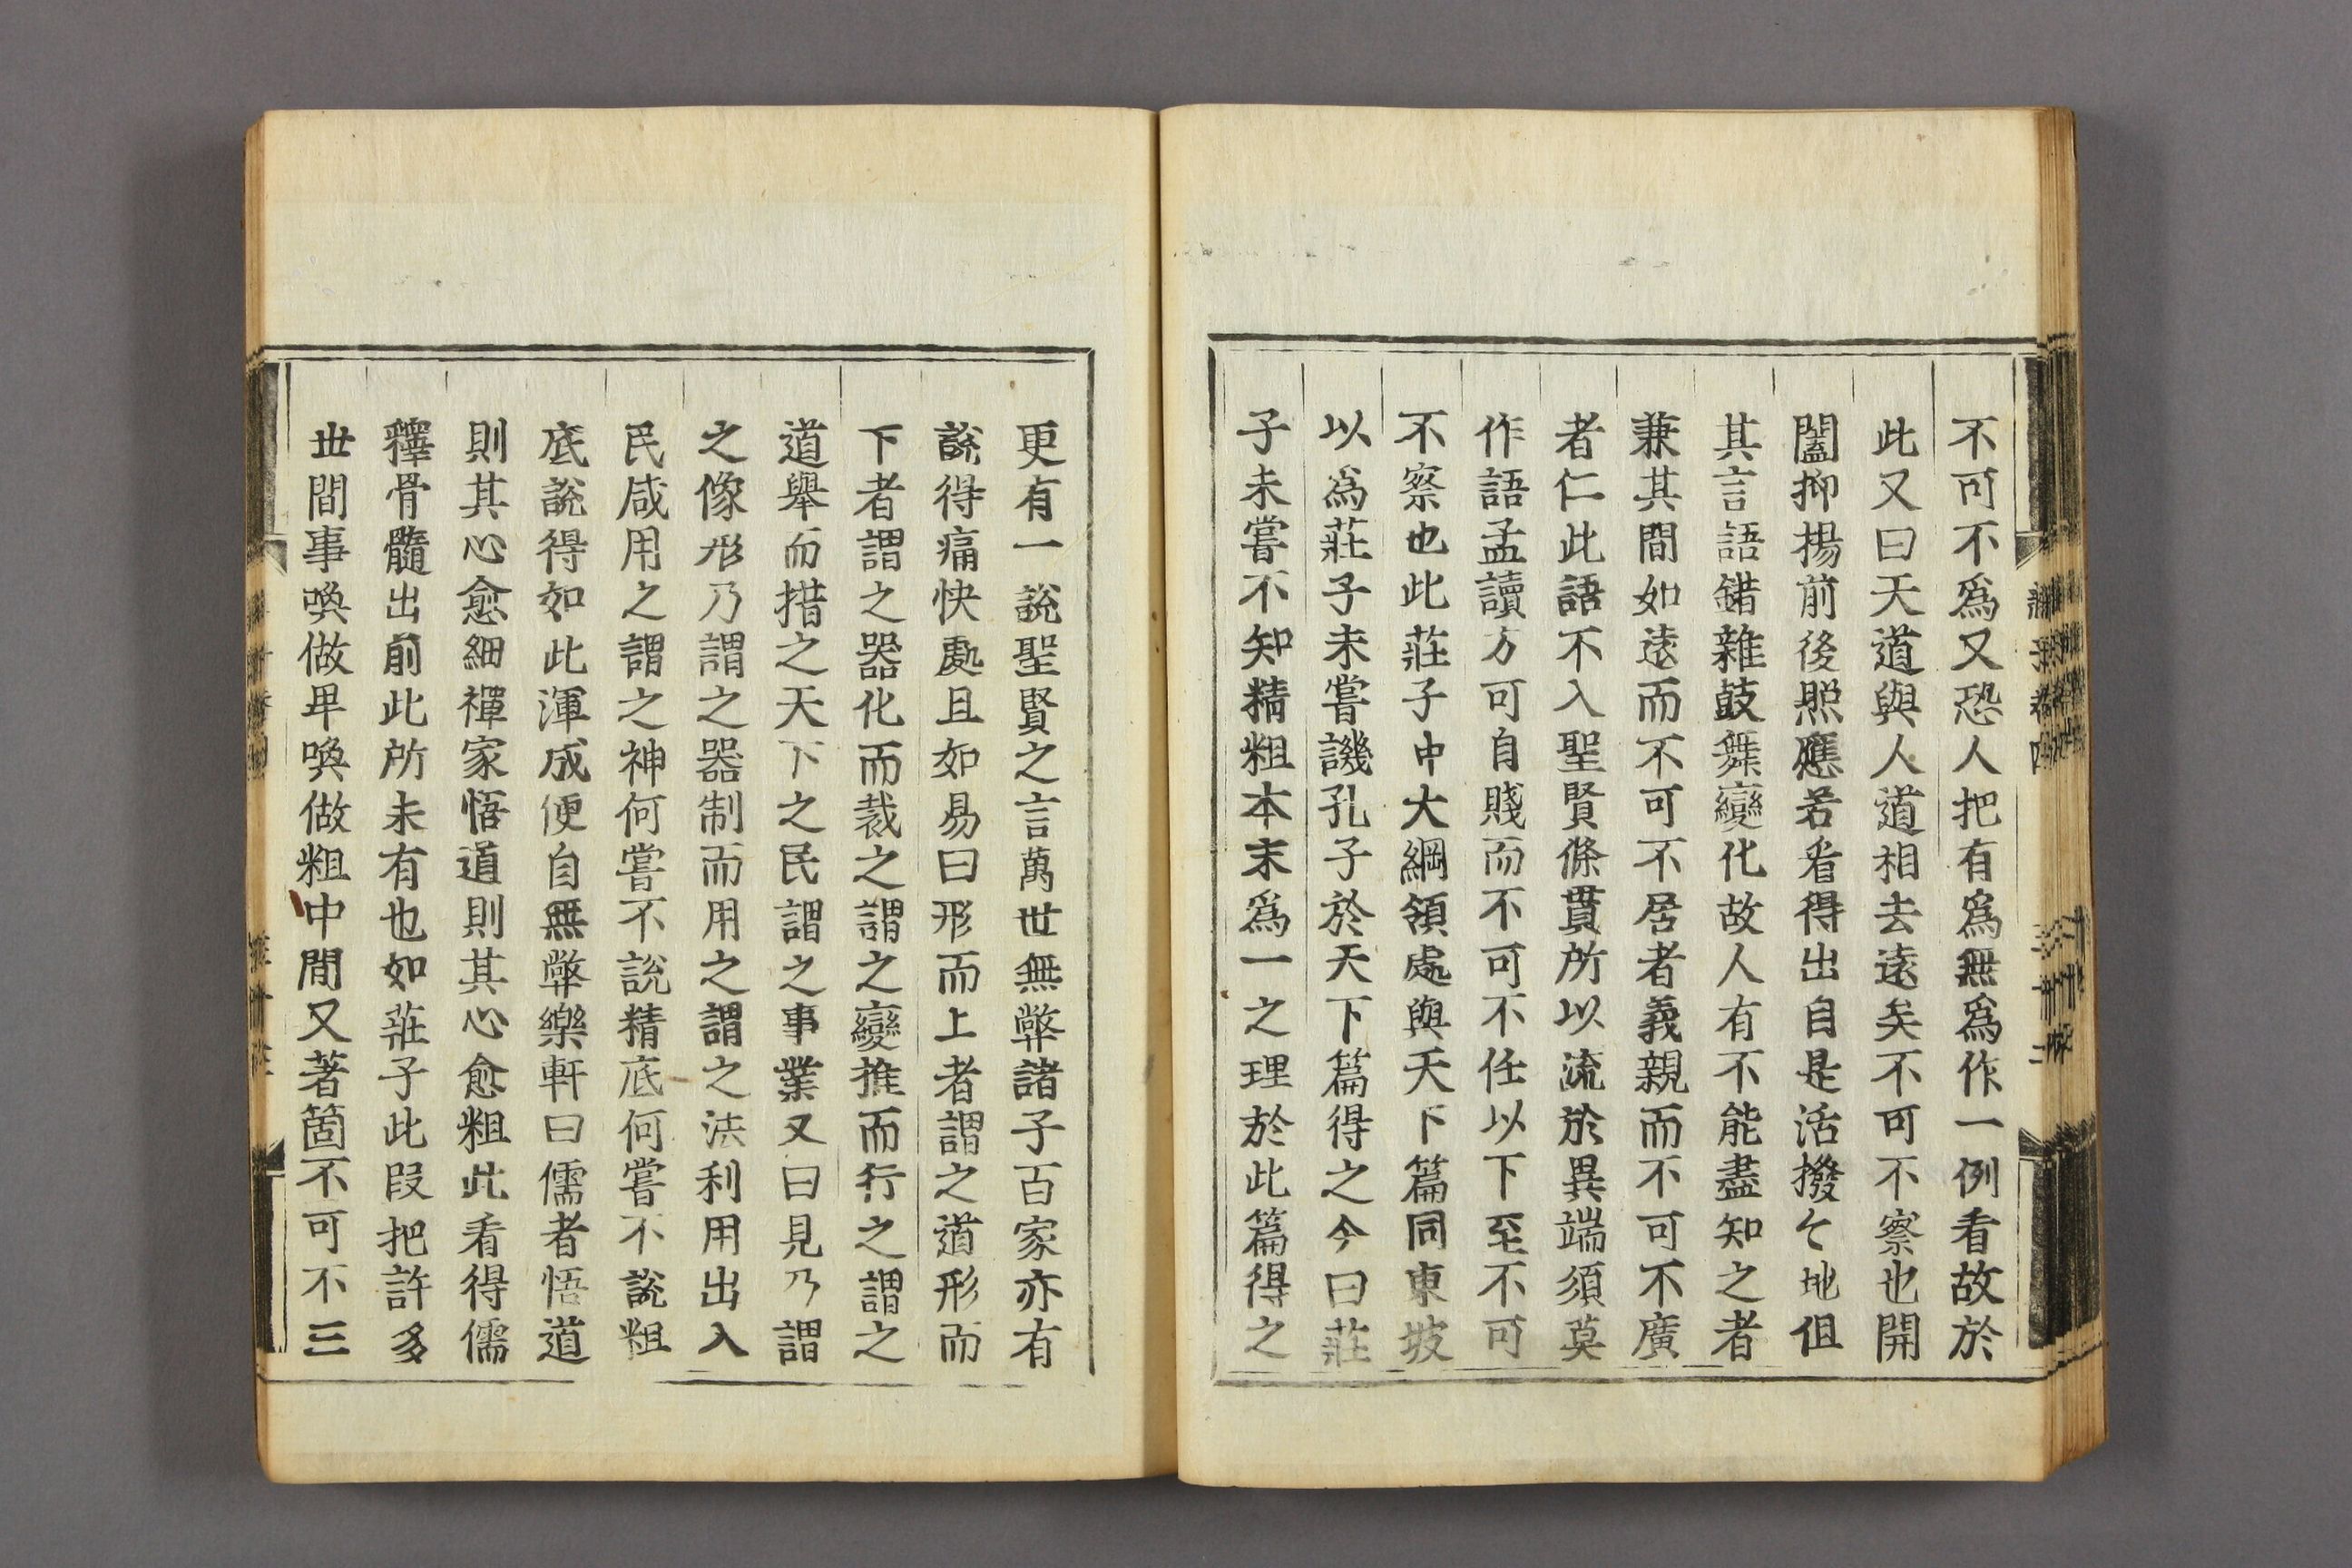 不可不爲又恐人把有爲無爲作一例看故於
此又曰天道與人道相去遠矣不可不察也開
闔抑揚前後照應若看得出自是活撥〻地但
其言語錯雜鼓舞變化故人有不能盡知之者
兼其間如遠而不可不居者義親而不可不廣
者仁此語不入聖賢條貫所以流於異端須莫
作語孟讀方可自賤而不可不任以下至不可
不察也此莊子中大綱領處與天下篇同東坡
以爲莊子未嘗譏孔子於天下篇得之今曰莊
子未嘗不知精粗本末爲一之理於此篇得之
更有一說聖賢之言萬世無弊諸子百家亦有
說得痛快處且如易曰形而上者謂之道形而
下者謂之器化而裁之謂之變推而行之謂之
道舉而措之天下之民謂之事業又曰見乃謂
之像形乃謂之器制而用之謂之法利用出入
民咸用之謂之神何嘗不說精底何嘗不說粗
底說得如此渾成便自無弊樂軒曰儒者悟道
則其心愈細禪家悟道則其心愈粗此看得儒
釋骨髓出前此所未有也如莊子此段把許多
世間事喚做卑喚做粗中間又著箇不可不三